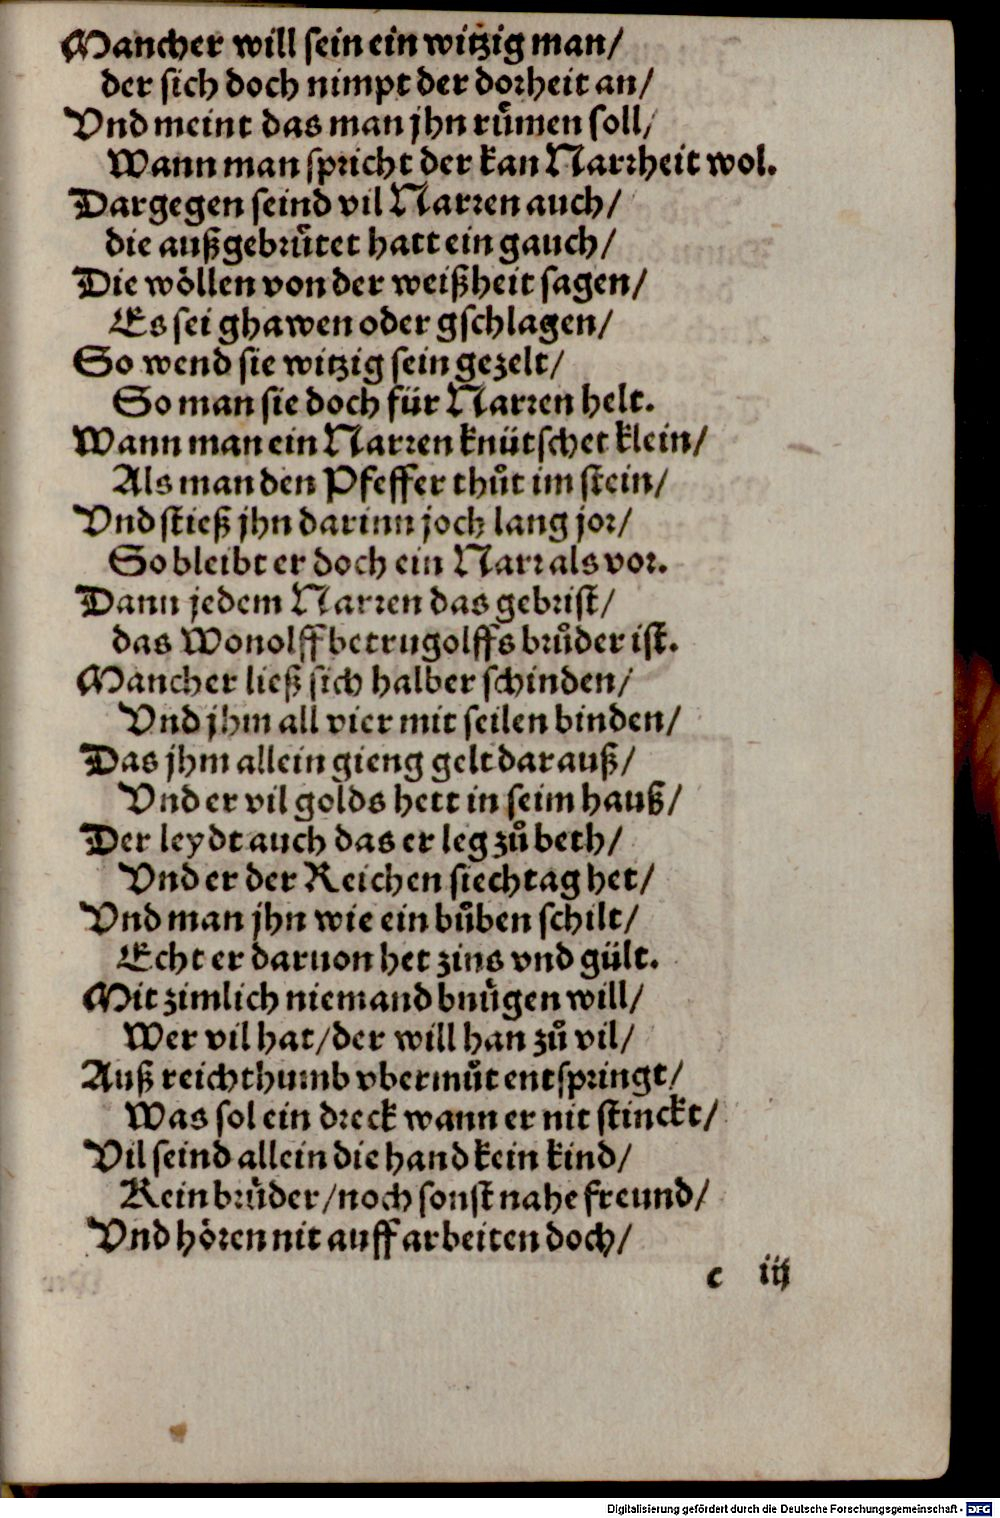 Mancher will sein ein witzig man/
der sich doch nimpt der dorheit an/
Vnd meint das man jhn ruͤmen soll/
Wann man spricht der kan Narrheit wol.
Dargegen seind vil Narren auch/
die außgebruͤtet hatt ein gauch/
Die woͤllen von der weißheit sagen/
Es sei ghawen oder gschlagen/
So wend sie witzig sein gezelt/
So man sie doch für Narren helt.
Wann man ein Narren knütschet klein/
Als man den Pfeffer thuͦt im stein/
Vnd stieß jhn darinn joch lang jor/
So bleibt er doch ein Narr als vor.
Dann jedem Narren das gebrist/
das Wonolff betrugolffs bruͦder ist.
Mancher ließ sich halber schinden/
Vnd jhm all vier mit seilen binden/
Das jhm allein gieng gelt darauß/
Vnd er vil golds hett in seim hauß/
Der leydt auch das er leg zuͦ beth/
Vnd er der Reichen siechtag het/
Vnd man jhn wie ein buͦben schilt/
Echt er daruon het zins vnd gült.
Mit zimlich niemand bnuͤgen will/
Wer vil hat/der will han zuͦ vil/
Auß reichthumb vbermuͦt entspringt/
Was sol ein dreck wann er nit stinckt/
Vil seind allein die hand kein kind/
Kein bruͦder/noch sonst nahe freund/
Vnd hoͤren nit auff arbeiten doch/
c iij
Digitalisierung gefördert durch die Deutsche Forschungsgemeinschaft - DFG